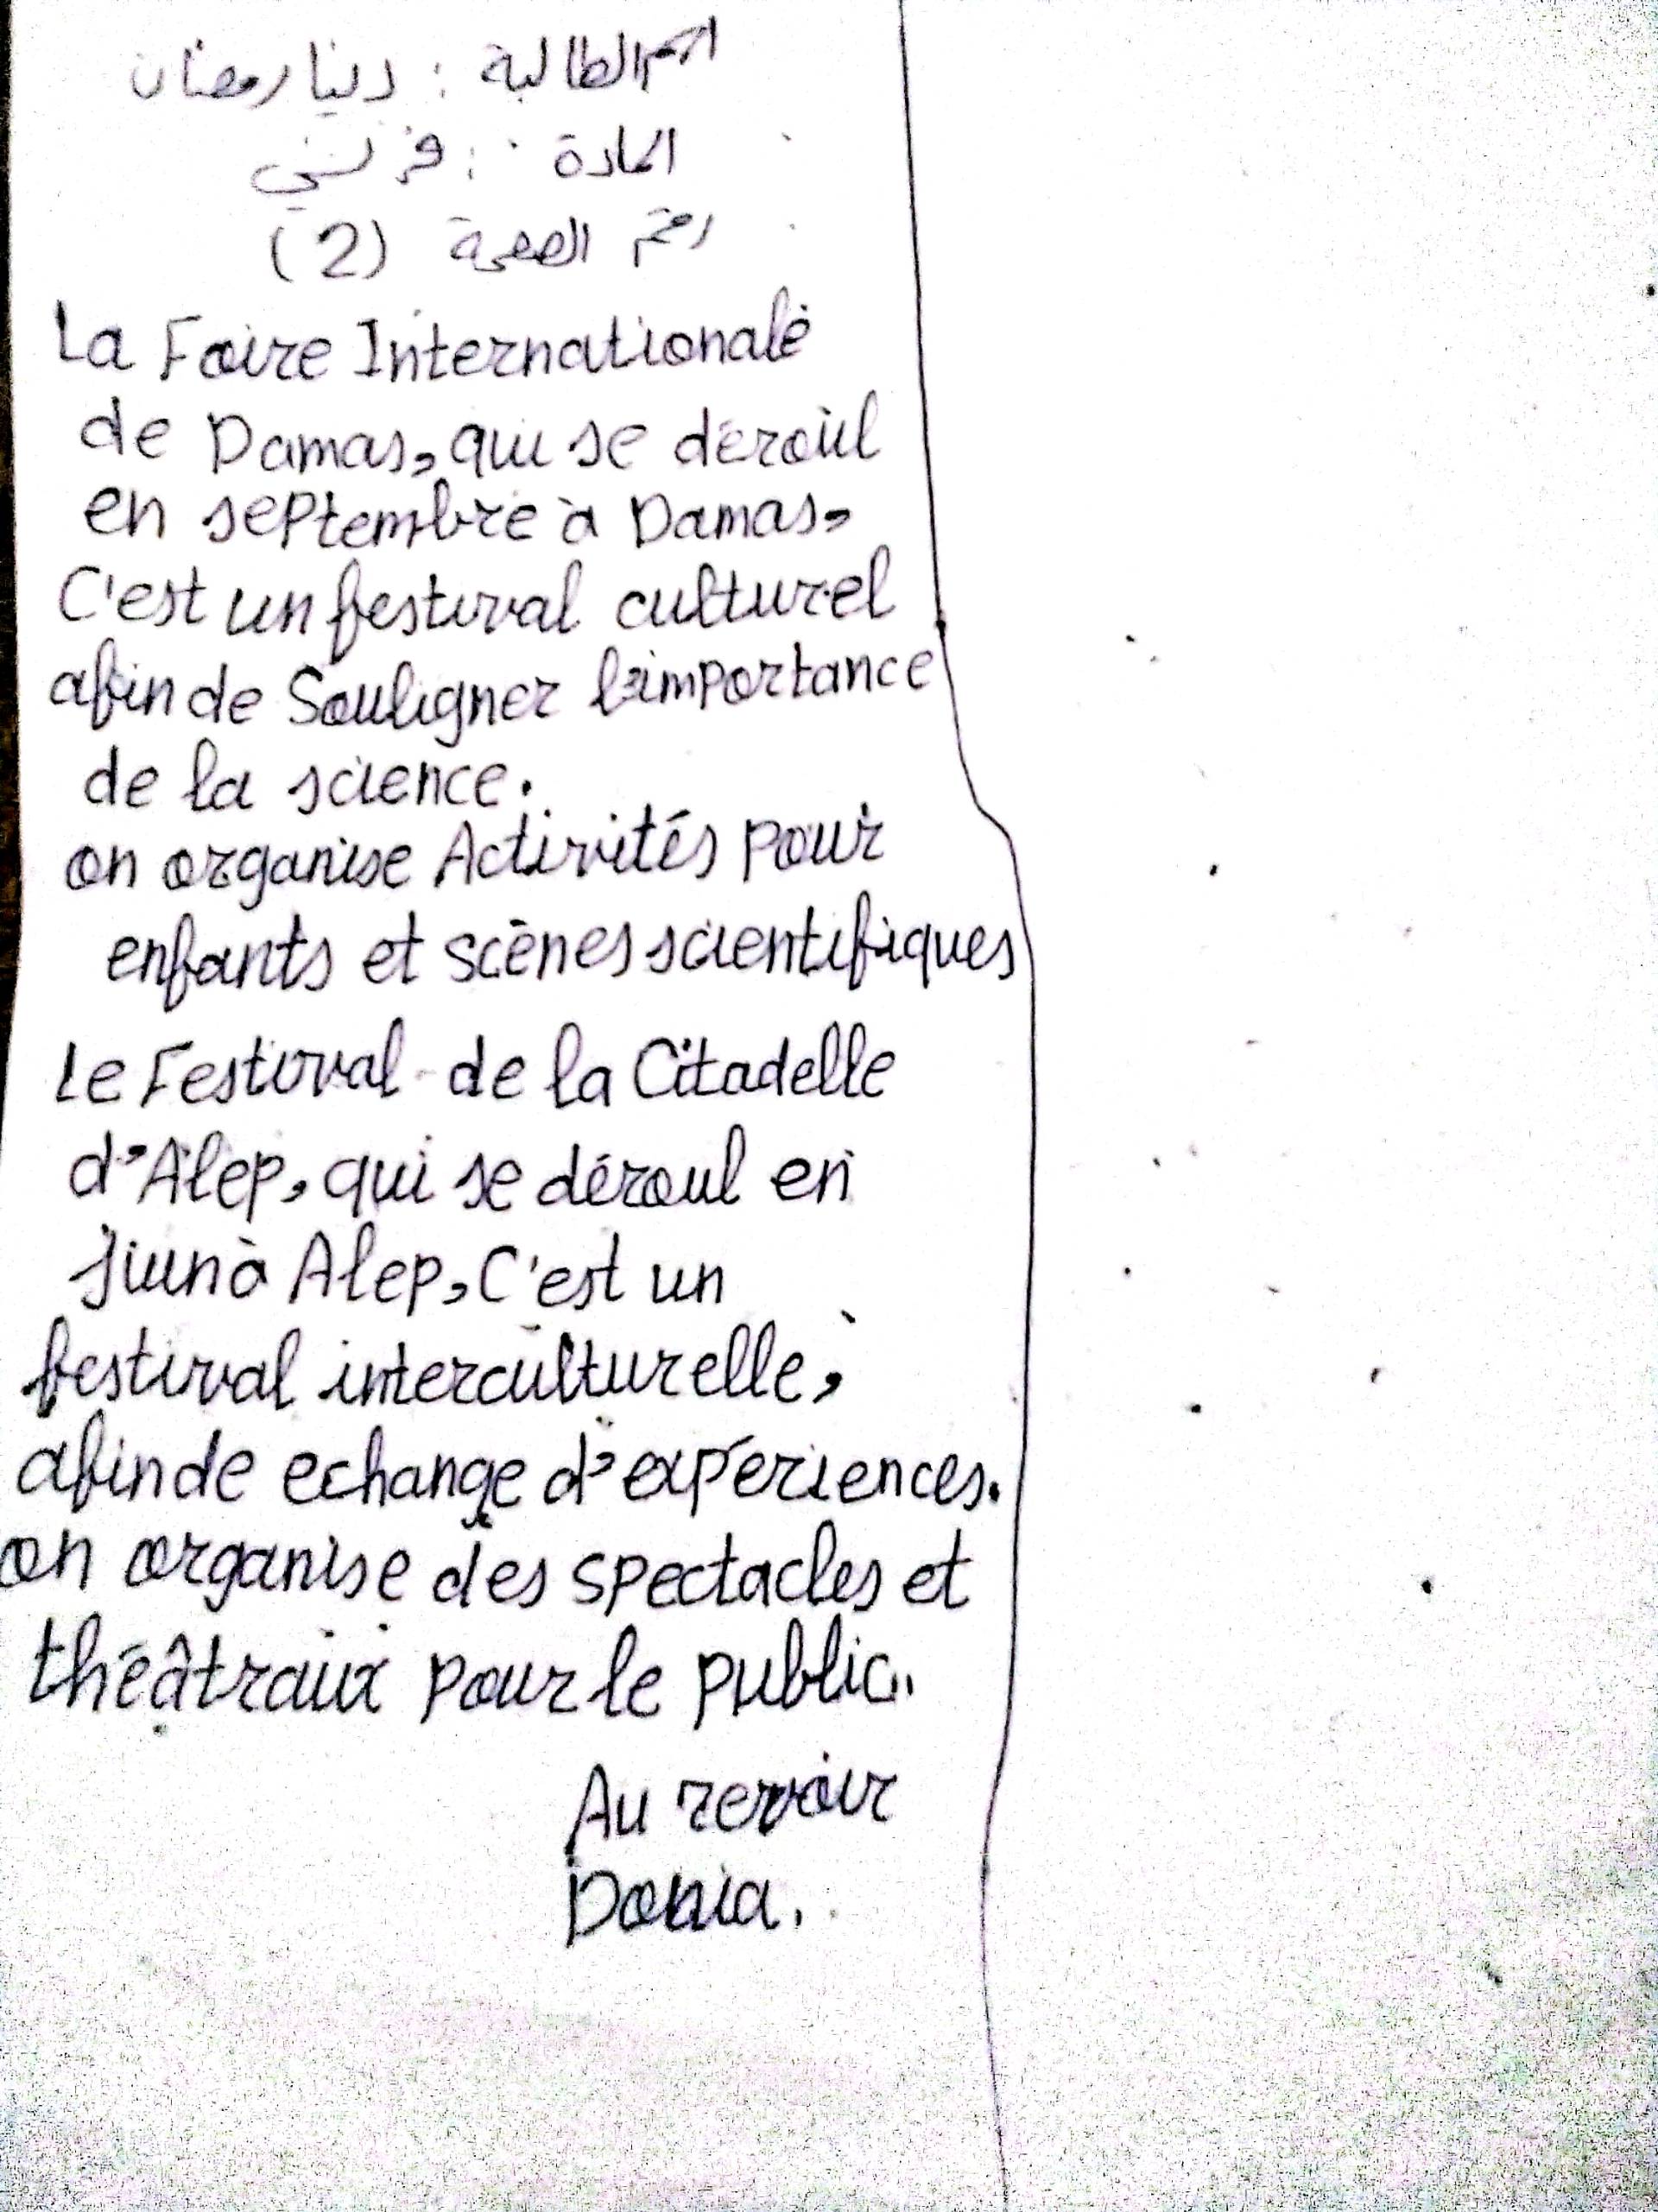 اسم الطالبة : دنيا رمضان
المادة : فرنسي
رقم الصفحة (2)
La Foire Internationale
de Damas, qui se déroul
en septembre à Damas,
C'est un festival culturel
afin de Souligner l'importance
de la science.
on organise Activités pour
enfants et scènes scientifiques
Le Festival de la Citadelle
d'Alep, qui se déroul en
Jiun à Alep, C'est un
festival interculturelle,
afin de echange d'expériences.
on organise des spectacles et
théâtraux pour le public.
Au revoir
Donia.